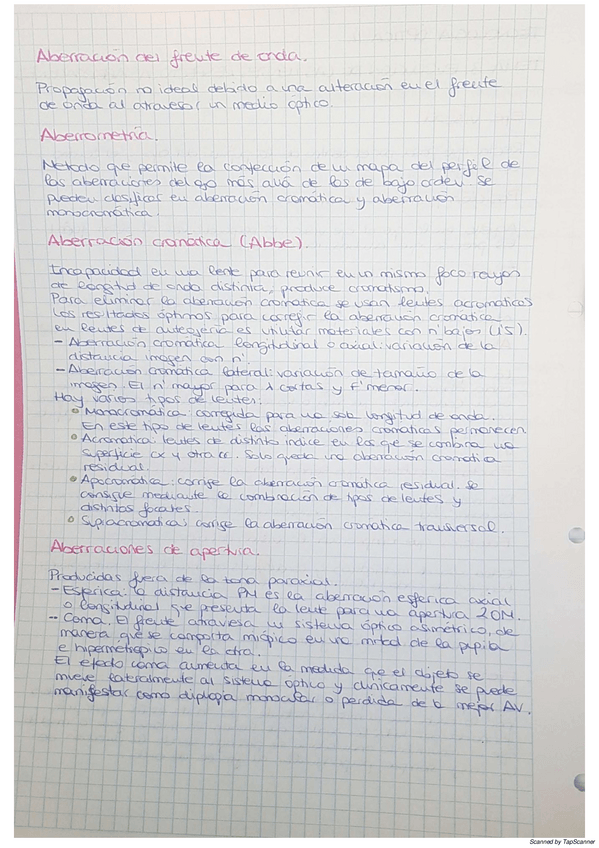 Aberración del frente de onda.
Propagación no ideal debido a una alteración en el frente
de onda al atravesar un medio óptico.
Aberrometría.
Metodo que permite la confección de un mapa del perfil de
las aberraciones del ojo más allá de las de bajo orden. Se
pueden clasificar en aberración cromática y aberración
monocromática.
Aberración cromática (Abbe).
Incapacidad en una lente para reunir en un mismo foco rayos
de longitud de onda distinta, produce cromatismo.
Para eliminar la aberración cromática se usan lentes acromaticas
Los resultados óptimos para corregir la aberración cromática
en lentes de anteojería es utilizar materiales con n' bajos (1'5).
- Aberración cromática longitudinal o axial: variación de la
distancia imagen con n'.
- Aberración cromática lateral: variación de tamaño de la
imagen. El n' mayor para λ cortas y f' menor.
Hay varios tipos de lentes:
Monocromática: corregida para una sola longitud de onda.
En este tipo de lentes las aberraciones cromaticas permanecen
Acromatica: lentes de distinto indice en las que se combina una
superficie cx y otra cc. Solo queda una aberación cromatica
residual.
Apocromatica: corrige la aberración cromatica residual. Se
consigue mediante la combinación de tipos de lentes y
distintas focales.
Supracromatica: corrige la aberración cromatica transversal.
Aberraciones de apertura.
Producidas fuera de la zona paraxial.
- Esferica: la distancia PM es la aberración esferica axial
o longitudinal que presenta la lente para una apertura 20M.
- Coma. El frente atraviesa un sistema óptico asimétrico, de
manera que se comporta miópico en una mitad de la pupila
e hipermetropico en la otra.
El efecto coma aumenta en la medida que el objeto se
mueve lateralmente al sistema óptico y clinicamente se puede
manifestar como diplopia monocular o perdida de la mejor AV.
Scanned by TapScanner